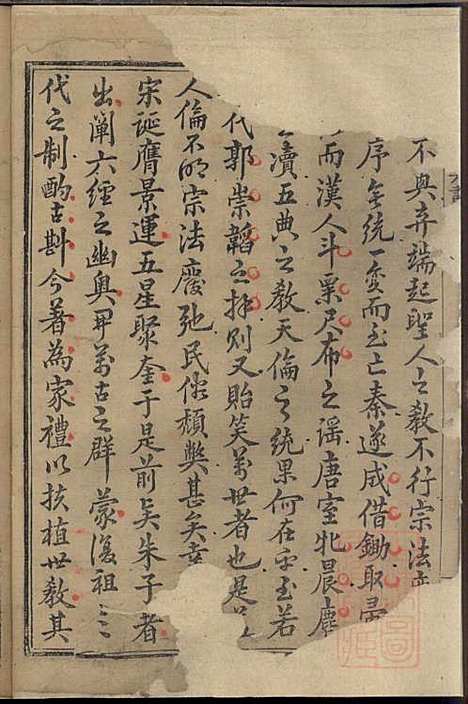 不興弃端起聖人之教不行宗法
序無統一變而至亡秦遂成借鋤取帚
而漢人斗粟尺布之謡唐室牝晨麀
瀆五典之教天倫之統果何在乎至若
代郭崇韜之拜則又貽笑萬世者也是
人倫不明宗法廢弛民俗頹弊甚矣幸
宋誕膺景運五星聚奎于是前吳朱子者
出闡六經之幽奥開萬古之群蒙復祖三
代之制酌古斟今著為家禮以扶植世教其